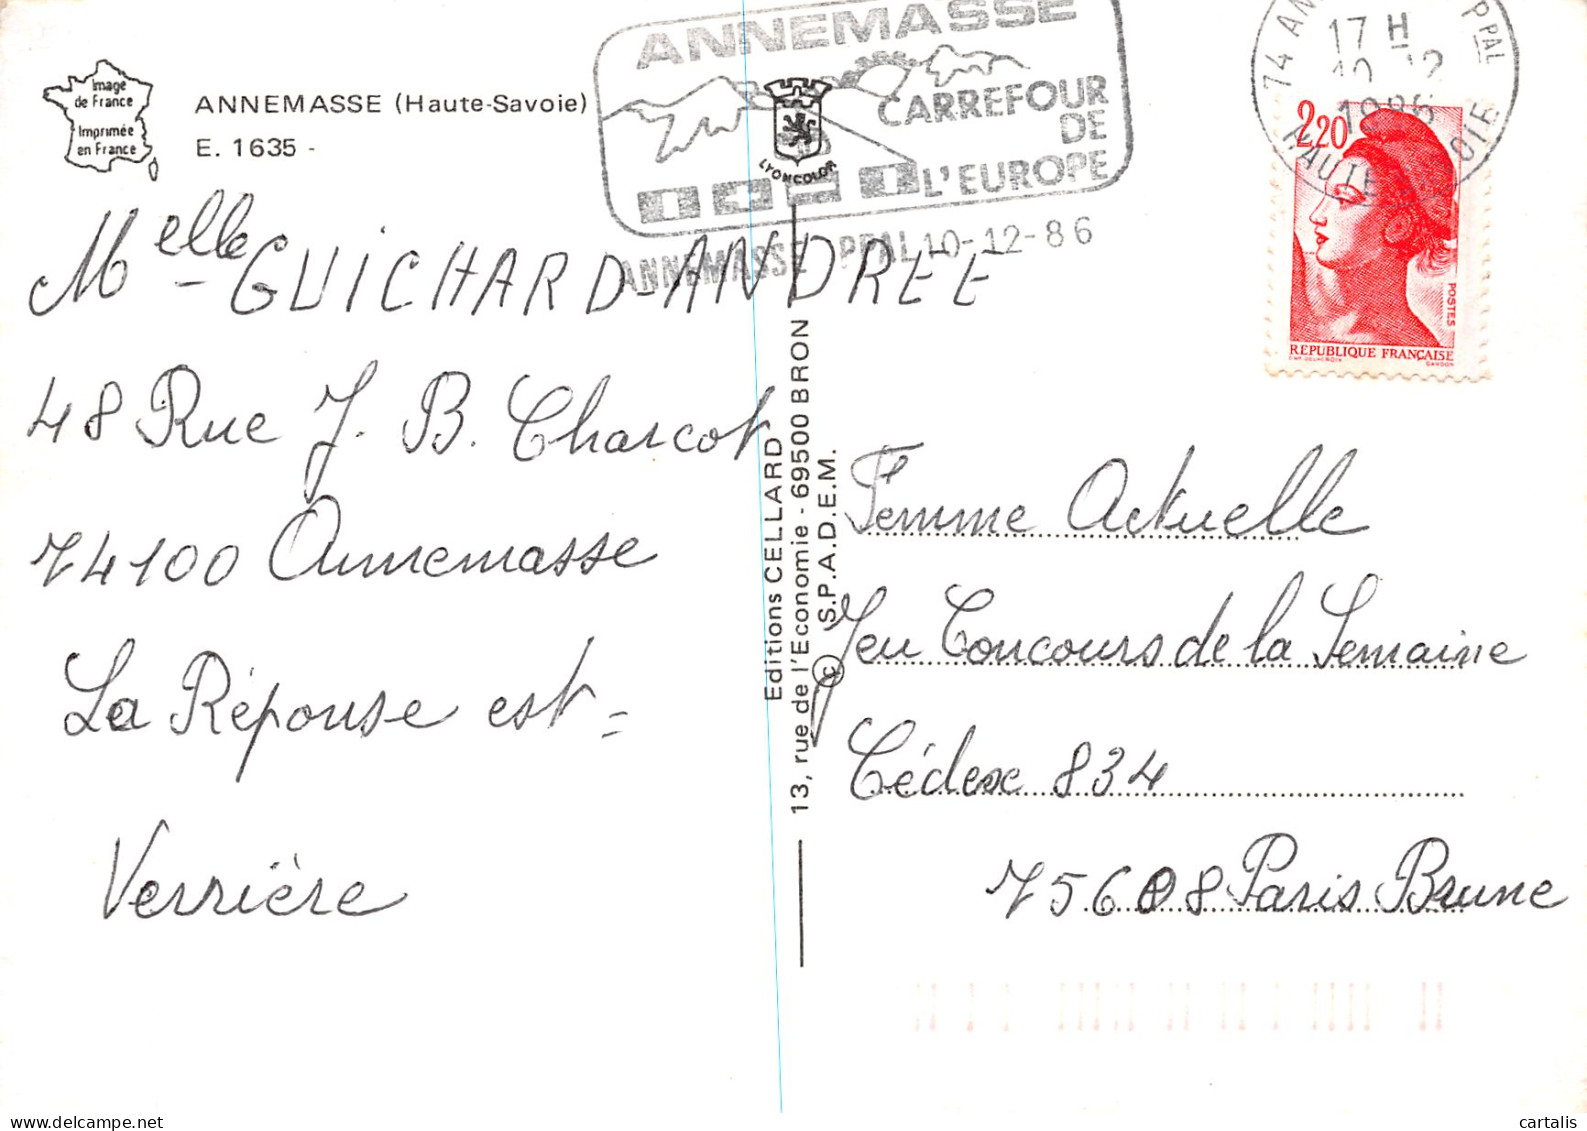 Image
de France
Imprimée
en France
ANNEMASSE (Haute-Savoie)
E. 1635 -
ANNEMASSE
CARREFOUR
DE
L'EUROPE
LYONCOLOR
ANNEMASSE PPAL 10-12-86
17 H
10 12
1986
HAUTE SAVOIE
2,20
POSTES
REPUBLIQUE FRANÇAISE
Melle - GUICHARD-ANDREE
48 Rue J. B. Charcot
74100 Annemasse
La Réponse est =
Verrière
Editions CELLARD
13, rue de l'Economie - 69500 BRON
© S.P.A.D.E.M.
Femme Actuelle
Jeu Concours de la Semaine
Cédex 834
75608 Paris Brune
cartalis